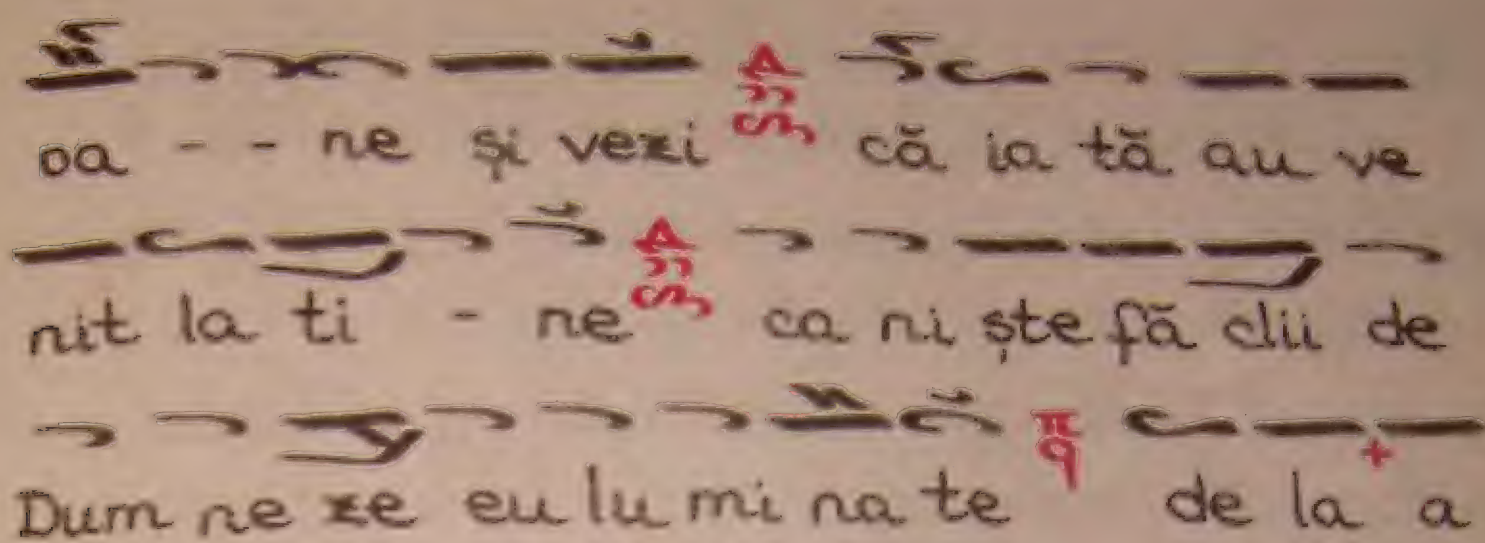 oa - - ne și vezi că ia tă au ve
nit la ti - ne ca ni ște fă clii de
Dum ne ze eu lu mi na te de la a